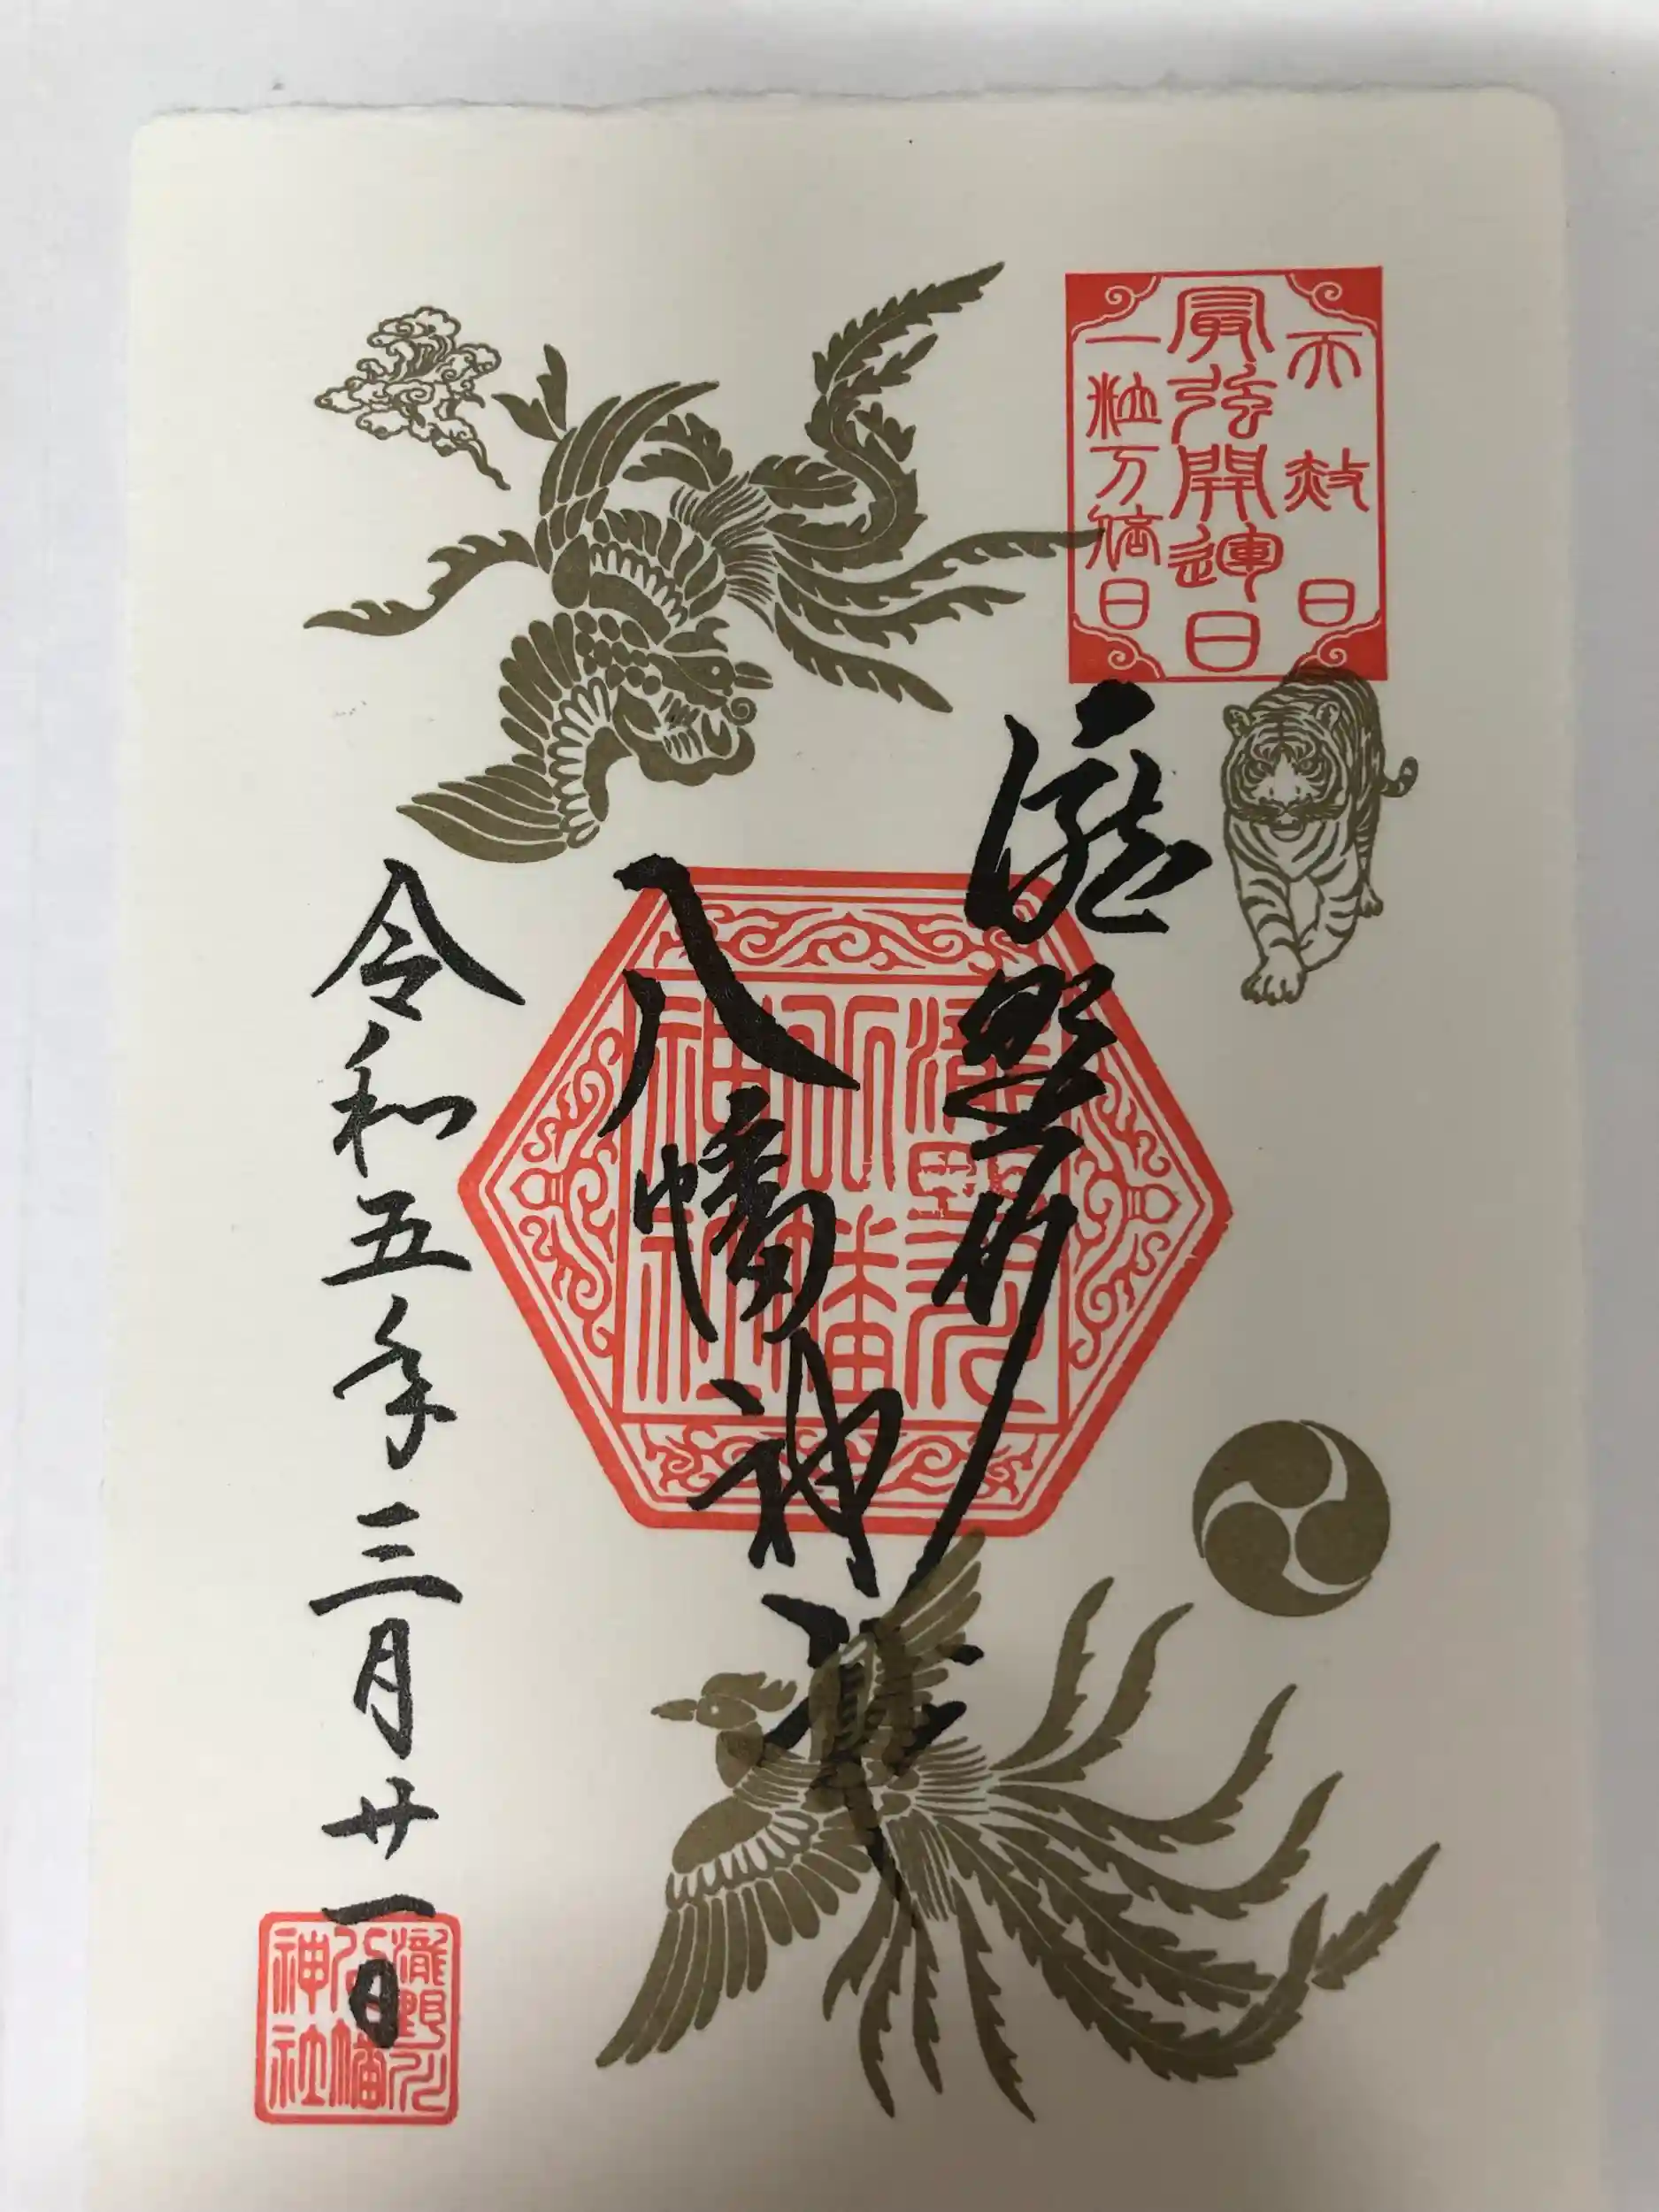 天赦日
最強開運日
一粒万倍日
瀧野川
八幡神社
令和五年三月廿一日
瀧野川
八幡
神社
瀧野川
八幡
神社